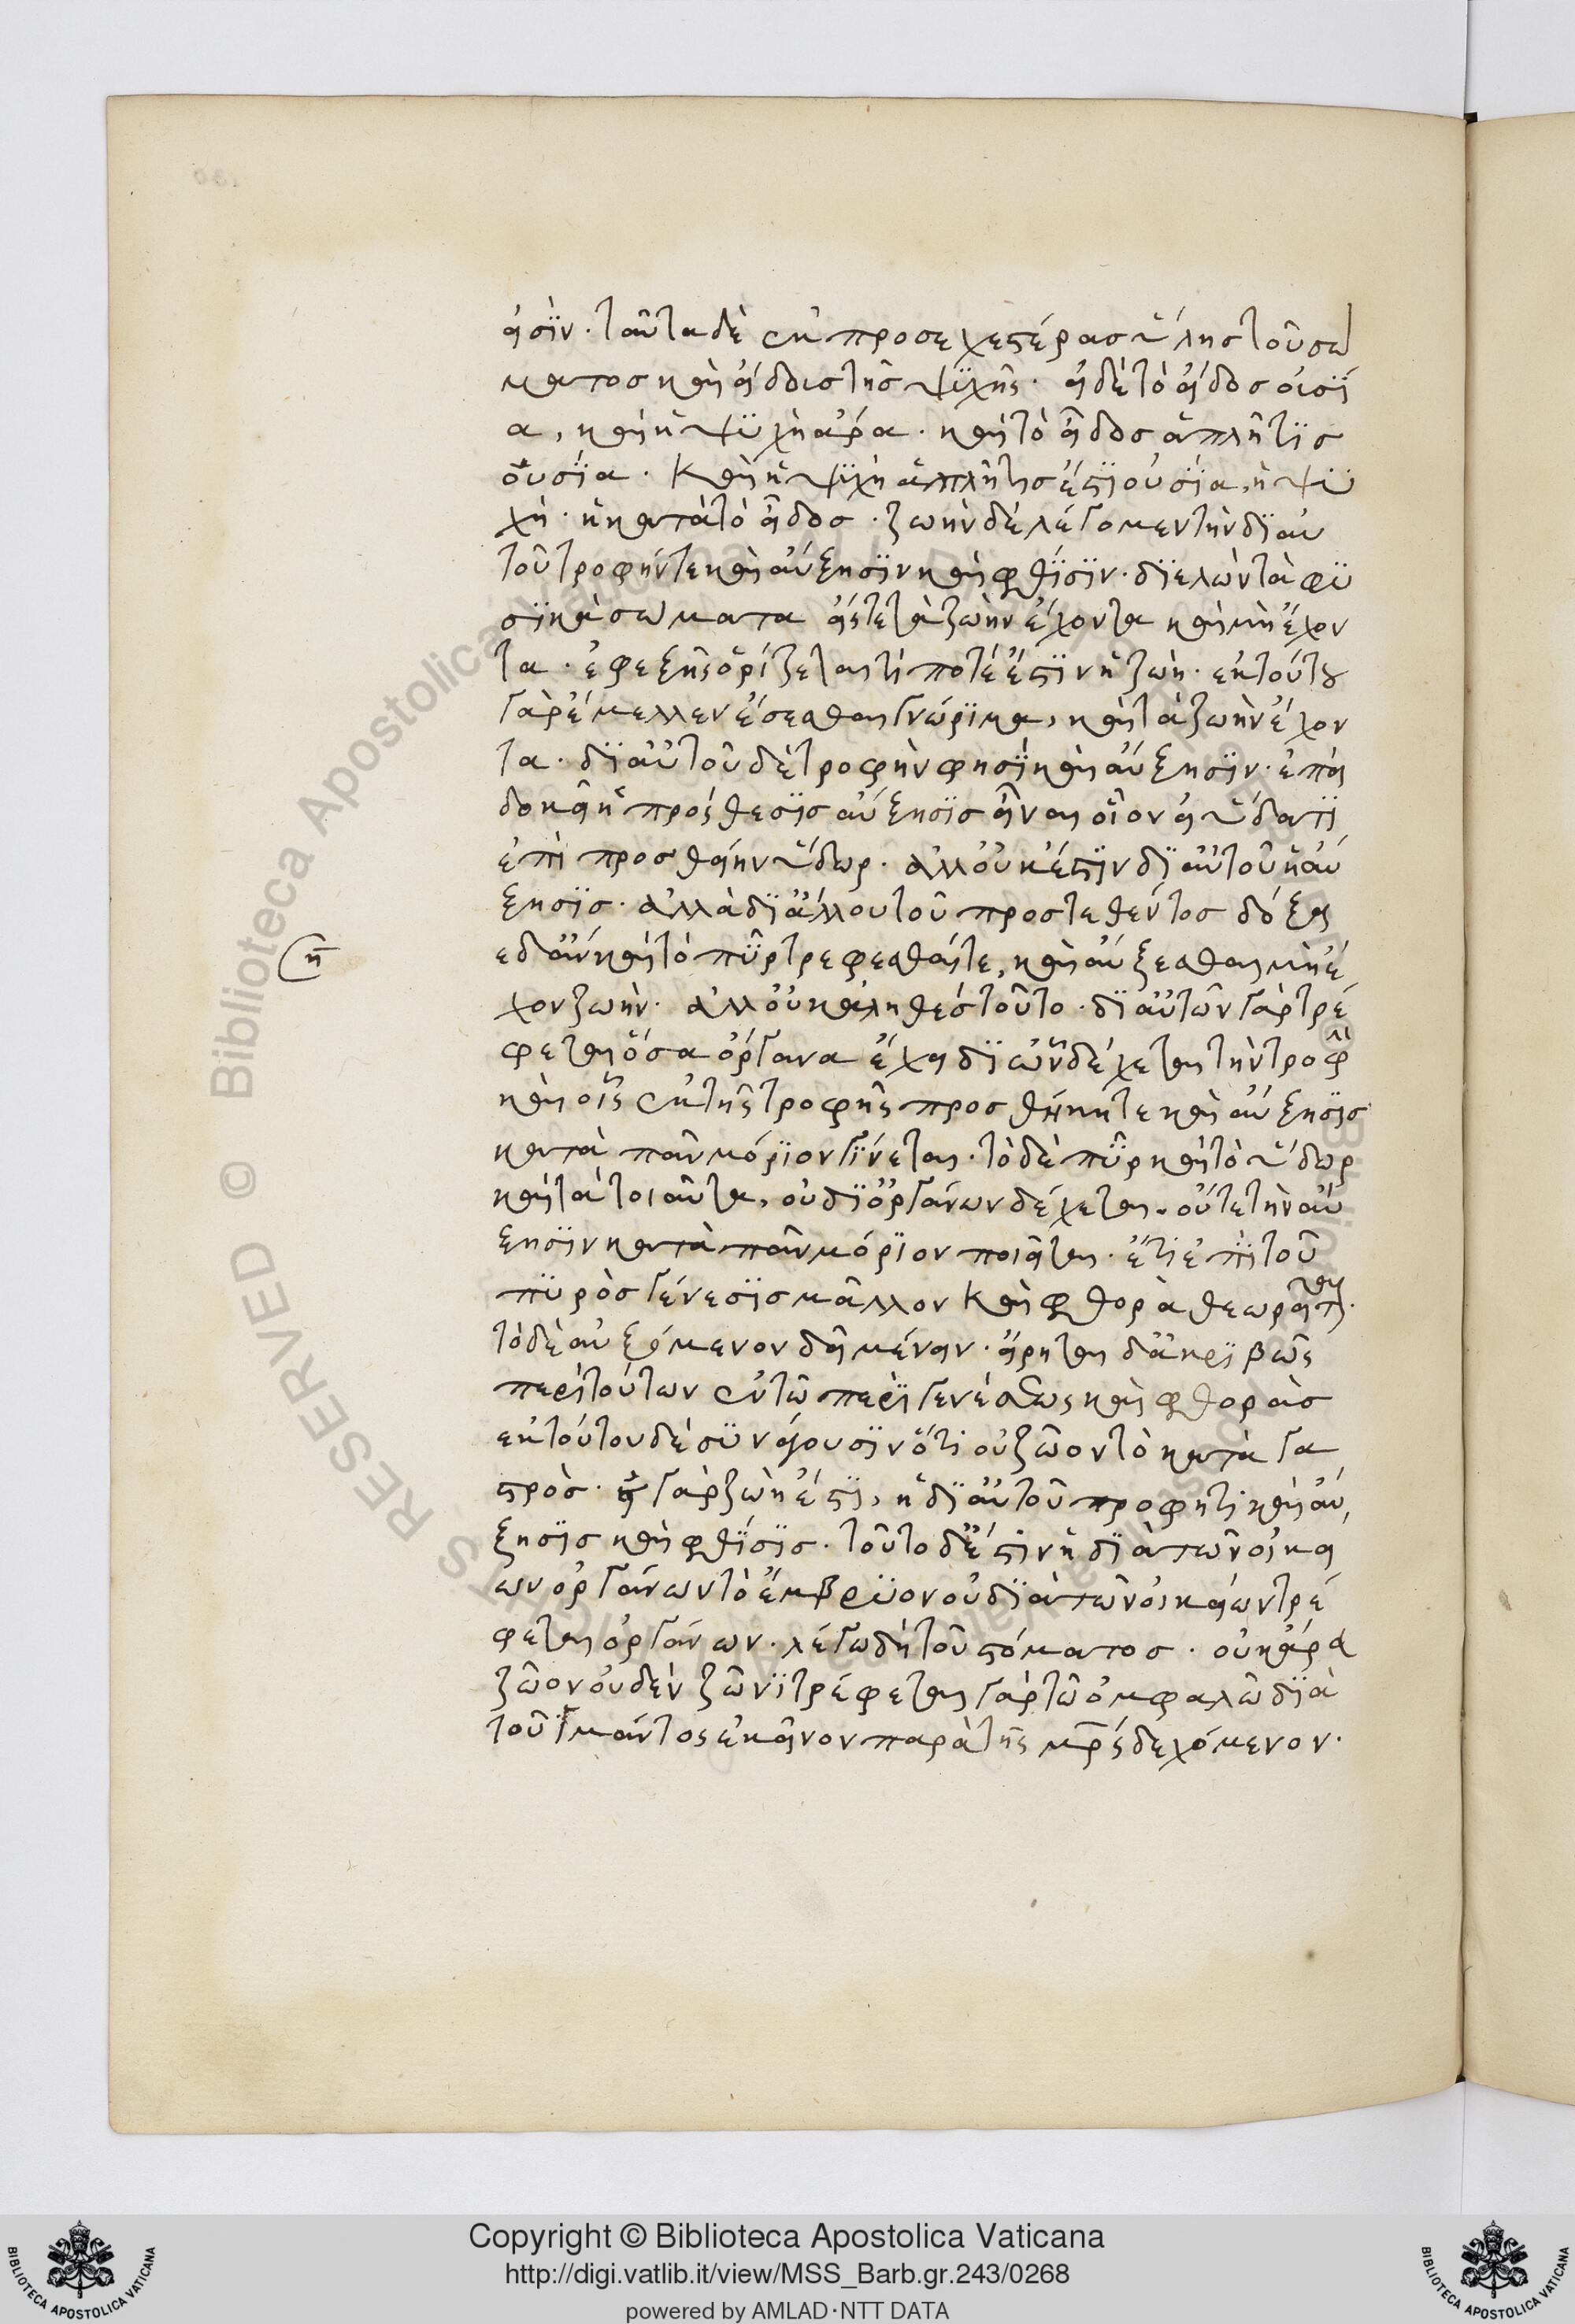 εἰσϊν· ταῦτα δὲ ἐκ προσεχεστέρας ὕλης τοῦ σώ
ματος καὶ εἴδους τῆς ψϋχῆς· εἰ δὲ τὸ εἶδος οὐσΐ
α, καὶ ἡ ψϋχὴ ἄρα· καὶ τὸ εἶδος ἁπλῆ τϊς
οὐσΐα· Καὶ ἡ ψϋχὴ ἁπλῆ τις ἐστϊ οὐσΐα, ἡ ψϋ
χὴ· ἡ κατὰ τὸ εἶδος· ζωὴν δὲ λέγομεν τὴν δϊ αὑ
τοῦ τροφήν τε καὶ αὔξησϊν καὶ φθΐσϊν· δϊελὼν τὰ φϋ
σϊκὰ σώματα εἴς τε τὰ ζωὴν ἔχοντα καὶ μὴ ἔχον
τα· ἐφεξῆς ὁρίζεται τί ποτέ ἐστϊν ἡ ζωή· ἐκ τούτου
γὰρ ἔμελλεν ἔσεσθαι γνώρϊμα, καὶ τὰ ζωὴν ἔχον
τα· δϊ αὑτοῦ δὲ τροφὴν φησϊ καὶ αὔξησϊν· ἐπεὶ
δοκεῖ ἡ πρόσθεσϊς αὔξησϊς εἶναι οἷον εἰ ὕδατϊ
ἐπιπροσθείην ὕδωρ· ἀλλ οὐκ ἔστϊν δϊ αὑτοῦ ἡ αὔ
ξησϊς· ἀλλὰ δϊ ἄλλου τοῦ προστεθέντος δόξει
ε δ ἂν καὶ τὸ πῦρ τρέφεσθαί τε, καὶ αὔξεσθαι μὴ ἔ
χον ζωὴν· ἀλλ οὐκ ἀληθὲς τοῦτο· δϊ αὑτῶν γὰρ τρέ
φεται ὅσα ὄργανα ἔχει δϊ ὧν δέχεται τὴν τροφὴ
καὶ οἷς ἐκ τῆς τροφῆς προσθήκη τε καὶ αὔξησϊς
κατὰ πᾶν μόρϊον γΐνεται· τὸ δὲ πῦρ καὶ τὸ ὕδωρ
καὶ τὰ τοιαῦτα, οὐ δϊ ὀργάνων δέχεται. οὔτε τὴν αὔ
ξησϊν κατὰ πᾶν μόρϊον ποιεῖται· ἔτϊ ἐπῒ τοῦ
πϋρὸς γένεσϊς μᾶλλον Καὶ φθορὰ θεωρεῖται·
τὸ δὲ αὐξόμενον δεῖ μένειν· εἴρηται δ ἀκρϊβῶς
περὶ τούτων ἐν τῷ περῒ γενέσεως καὶ φθορᾶς
ἐκ τούτου δὲ σϋνάγουσϊν ὅτϊ οὐ ζῶον τὸ κατὰ γα
στρὸς· εἰ γὰρ ζωὴ ἐστϊ, ἡ δϊ αὑτοῦ τροφή τϊ καὶ αὔ
ξησϊς καὶ φθΐσϊς· τοῦτο δ ἔστϊν ἡ δϊὰ τῶν οἰκεί
ων ὀργάνων τὸ ἔμβρϋον οὐ δϊὰ τῶν οἰκείων τρέ
φεται ὀργάνων· λέγω δὴ τοῦ στόματος· οὐκ ἄρα
ζῶον οὐδὲν ζῶν ϊ τρέφεται γὰρ τῷ ὀμφαλῷ δϊὰ
τοῦ ϊμάντος ἐκείνον παρὰ τῆς μρς δεχόμενον·
η
Copyright © Biblioteca Apostolica Vaticana
http://digi.vatlib.it/view/MSS_Barb.gr.243/0268
powered by AMLAD·NTT DATA